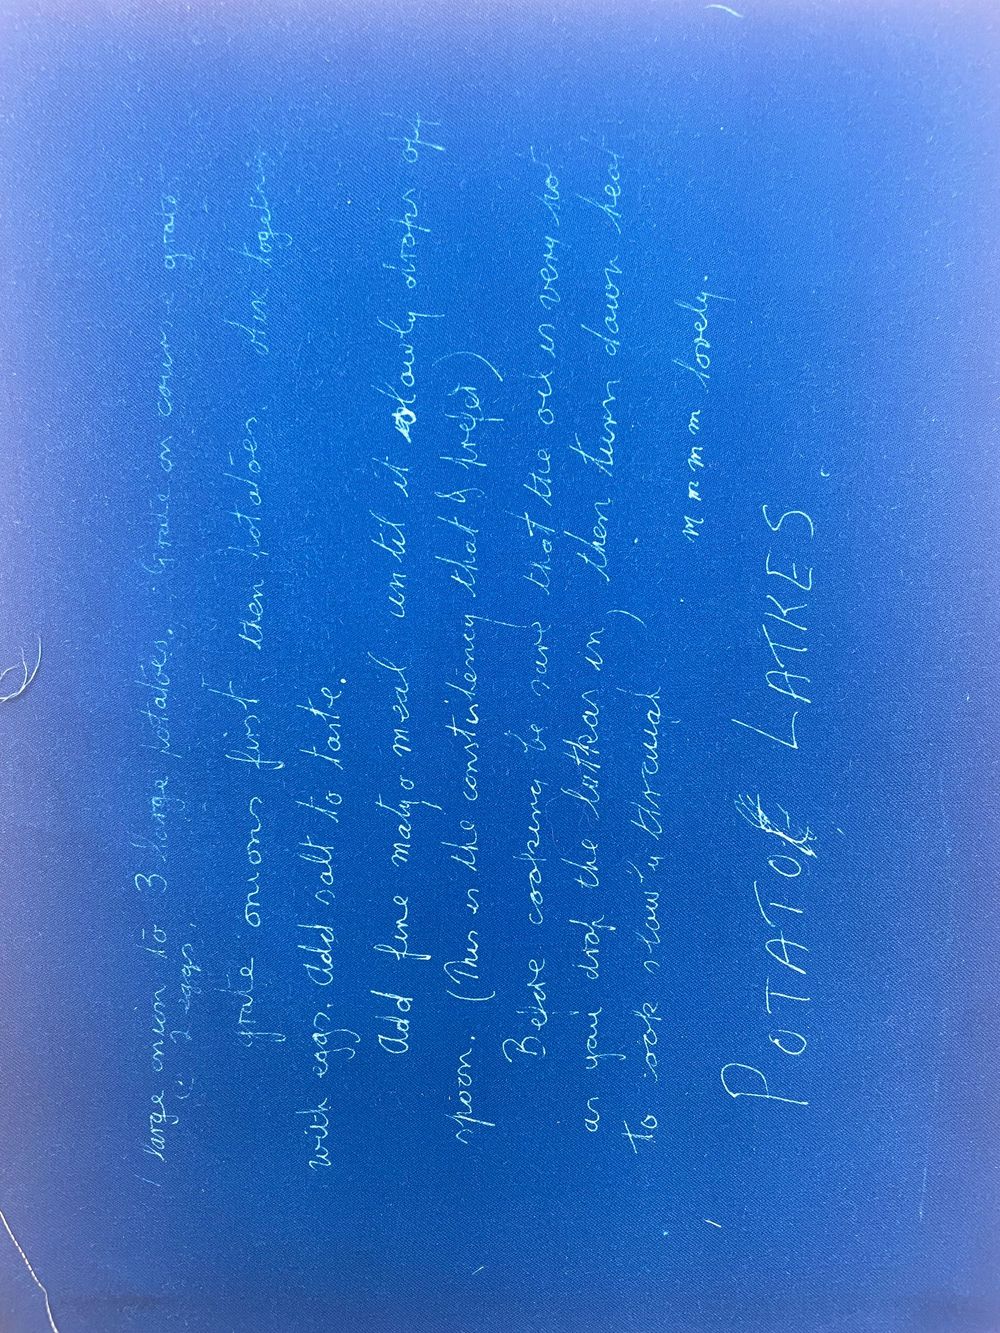 1 large onion to 3 large potatoes. Grate on course grate
2 eggs.
grate onions first then potatoes. Mix together
with eggs. Add salt to taste.
Add fine matzo meal until it slowly drops off
spoon. (This is the consistency that I prefer)
Before cooking be sure that the oil is very hot
as you drop the latkas in, then turn down heat
to cook slowly through
mmmm lovely.
POTATOE LATKES